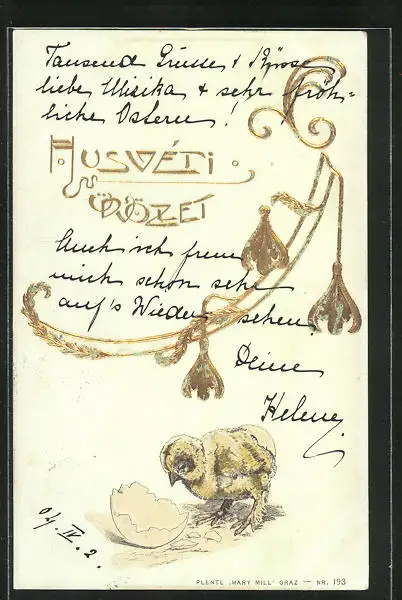 Tausend Grüsse & Küsse
liebe Misika & sehr fröh=
liche Ostern!
HUSVÉTI
ÜDVÖZLET
Auch ich freue
mich schon sehr
auf's Wieder sehen.
Deine
Helene
04. IV. 2.
PLENTL „MARY MILL" GRAZ — NR. 193